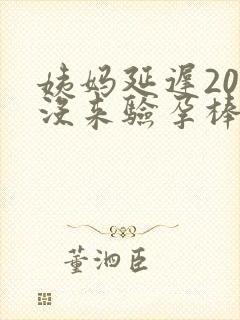 姨妈延遲20
没来驗孕棒
董泗臣